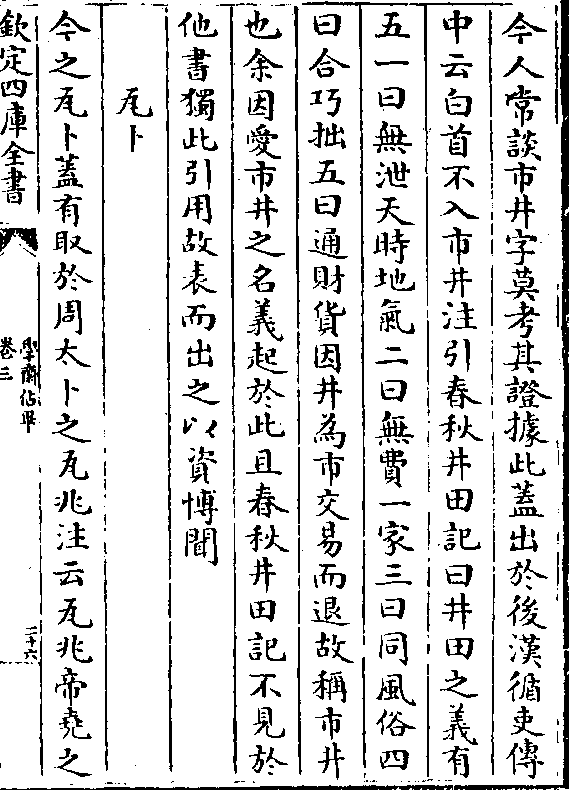 今人常談市井字莫考其證據此蓋出於後漢循吏傳
中云白首不入市井注引春秋井田記曰井田之義有
五一曰無泄天時地氣二曰無費一家三曰同風俗四
曰合巧拙五曰通財貨因井為市交易而退故稱市井
也余因愛市井之名義起於此且春秋井田記不見於
他書獨此引用故表而出之以資博聞
瓦卜
今之瓦卜蓋有取於周太卜之瓦兆注云瓦兆帝堯之
欽定四庫全書
學齋佔畢
卷三
二十六